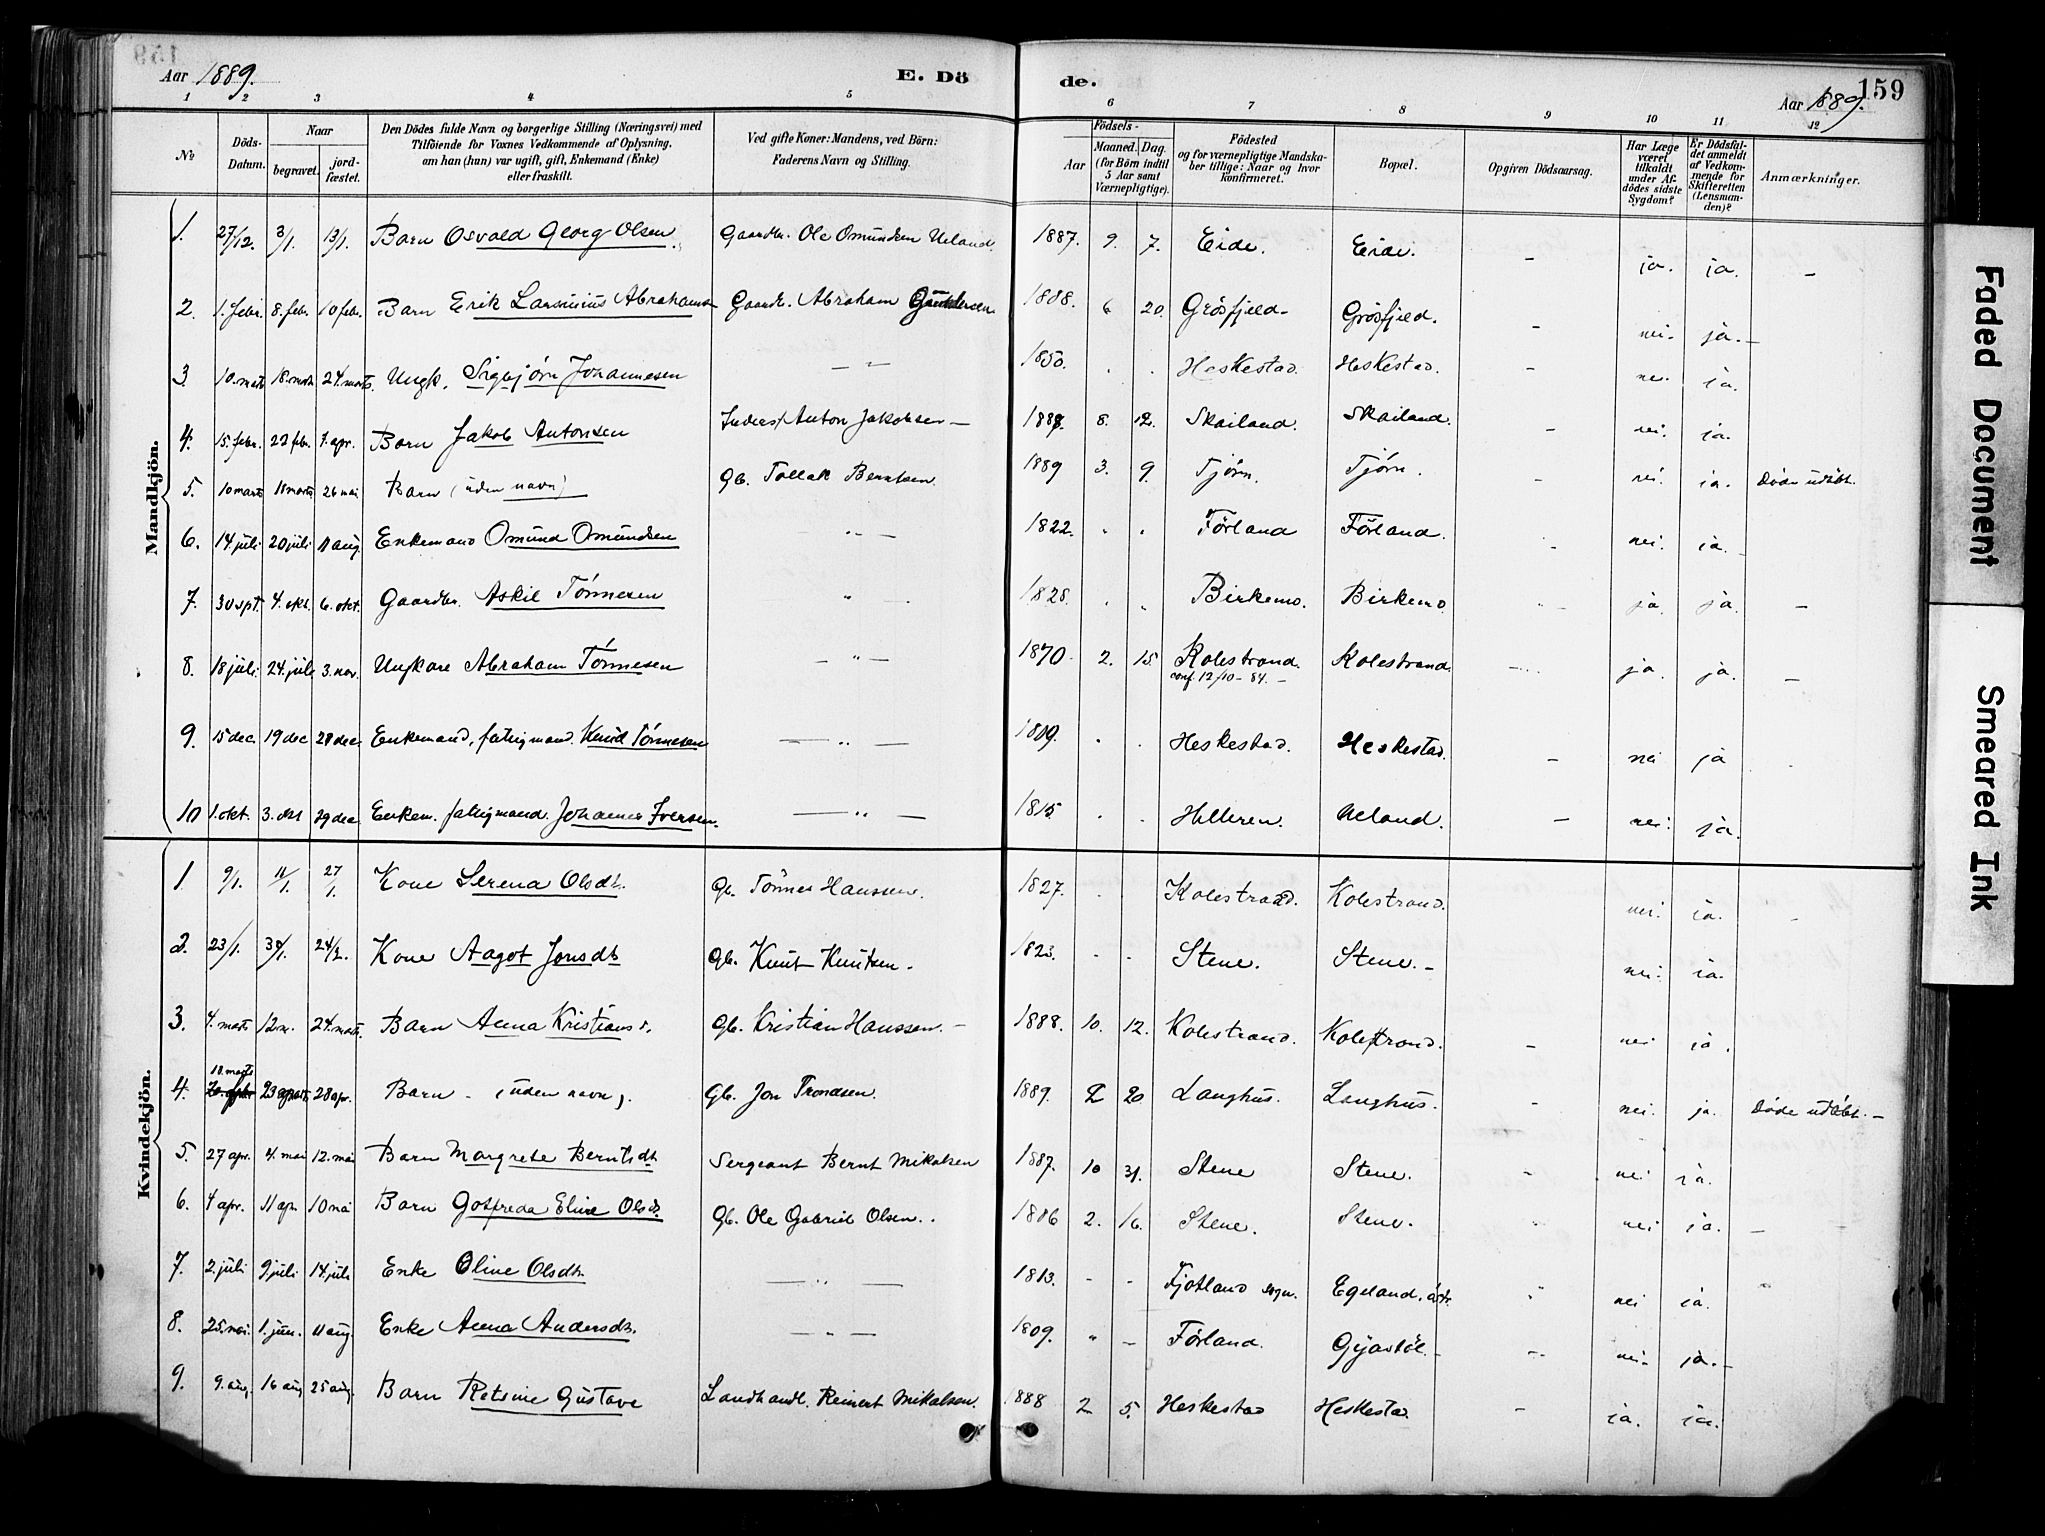 Aar 1889.
E. Dö
de.
Aar 1889.
159
1 2 3 4 5 6 7 8 9 10 11 12
№
Döds-Datum.
Naar
begravet.
jordfæstet.
Den Dödes fulde Navn og borgerlige Stilling (Næringsvei) med
Tilföiende for Voxnes Vedkommende af Oplysning,
om han (hun) var ugift, gift, Enkemand (Enke)
eller fraskilt.
Ved gifte Koner: Mandens, ved Börn:
Faderens Navn og Stilling.
Födsels-
Aar
Maaned.
Dag.
(for Börn indtil
5 Aar samt
Værnepligtige).
Födested
og for værnepligtige Mandska-
ber tillige: Naar og hvor
konfirmeret.
Bopæl.
Opgiven Dödsaarsag.
Har Læge
været
tilkaldt
under Af-
dödes sidste
Sygdom?
Er Dödsfal-
det anmeldt
af Vedkom-
mende for
Skifteretten
(Lensman-
den)?
Anmærkninger.
Mandkjön.
1. 27/12. 3/1. 13/1. Barn Osvald Georg Olsen Gaardbr. Ole Omundsen Ueland. 1887. 9. 7. Eide. Eide. - ja. ja. -
2. 1. febr. 8. febr. 10 febr. Barn Erik Lansinius Abrahams Gaardb. Abraham Gundersen 1888. 6 20. Grösfjeld- Grösfjeld. - nei. ja. -
3 10. marts 18. marts 24. marts. Ungk. Sigbjörn Johannesen - " - 1850. . . Heskestad. Heskestad. - nei. ja.
4. 15. febr. 22 febr. 7. apr. Barn Jakob Antonsen Inderst Anton Jakobsen - 1887. 8. 12. Skailand. Skailand. - nei. ja.
5. 10 marts 11 marts 26 mai Barn (uden navn) Gb. Tollak Berntsen. 1889 3. 9. Tjörn. Tjörn. - nei. ja. Döde udöbt.
6. 14. juli 20 juli 11 aug. Enkemand Omund Omundsen - " - 1822. . . Förland Förland. - nei. ja. -
7. 30 spt. 4. okt. 6. okt. Gaardbr. Askil Tönnesen " 1828. . . Birkemo. Birkemo. - ja. ja. -
8. 18 juli. 24. juli 3. nov. Ungkare Abraham Tönnesen - " - 1870. 2. 15. Kolestrand. Kolestrand. - ja ja. -
conf. 12/10 - 84. -
9. 15 dec. 19 dec 28 dec. Enkemand, fattigmand. Knud Tönnesen - " - 1819. . . Heskestad. Heskestad. - nei ja .
10 1. okt. 3. okt 29 dec. Enkem. fattigmand. Johannes Iversen. - " - 1815. . . Helleren. Ueland. - nei. ja.
Kvindekjön.
1 9/1. 11/1. 27/1. Kone Serena Olsdt. Gb. Tönnes Hanssen. 1827. . . Kolestrand. Kolestrand. nei. ja. -
2. 23/1. 30/1. 24/2. Kone Aagot Jonsdt Gb. Knut Knutsen. 1823. . . Stene. Stene. - nei. ja.
3. 4. marts 12 m. 24. marts. Barn Anna Kristians d. Gb. Kristian Hanssen. - 1888. 10. 12. Kolestrand. Kolestrand. - nei ja.
18. marts
4. 23 28 apr. Barn - (uden navn). Gb. Jon Trondsen. 1889. 2 20. Langhus. Langhus. - nei. ja. Döde udöbt. -
5. 27 apr. 4. mai 12. mai Barn Margrete Berntsdt. Sergeant Bernt Mikalsen 1887. 10 31. Stene Stene. - nei ja.
6. 4 apr. 11 apr. 10 mai Barn Gotfreda Eline Olsdt. Gb. Ole Gabriel Olsen. 1886 2. 16. Stene. Stene. nei ja. -
7. 2. juli 9 juli 14. juli Enke Oline Olsdt. - " - 1813. - - Fjotland sogn. Egeland, östr. " nei ja. "
8. 25. mai. 1. juni. 11 aug. Enke Anna Andersdt. - " - 1809. " - Förland. Gyastöl. - - nei. ja. -
9. 9. aug. 16 aug 25 aug. Barn Retsine Gustave Landhandl. Reinert Mikalsen. 1888 2 5. Heskestad Heskestad. - ja. ja.
Faded Document
Smeared Ink